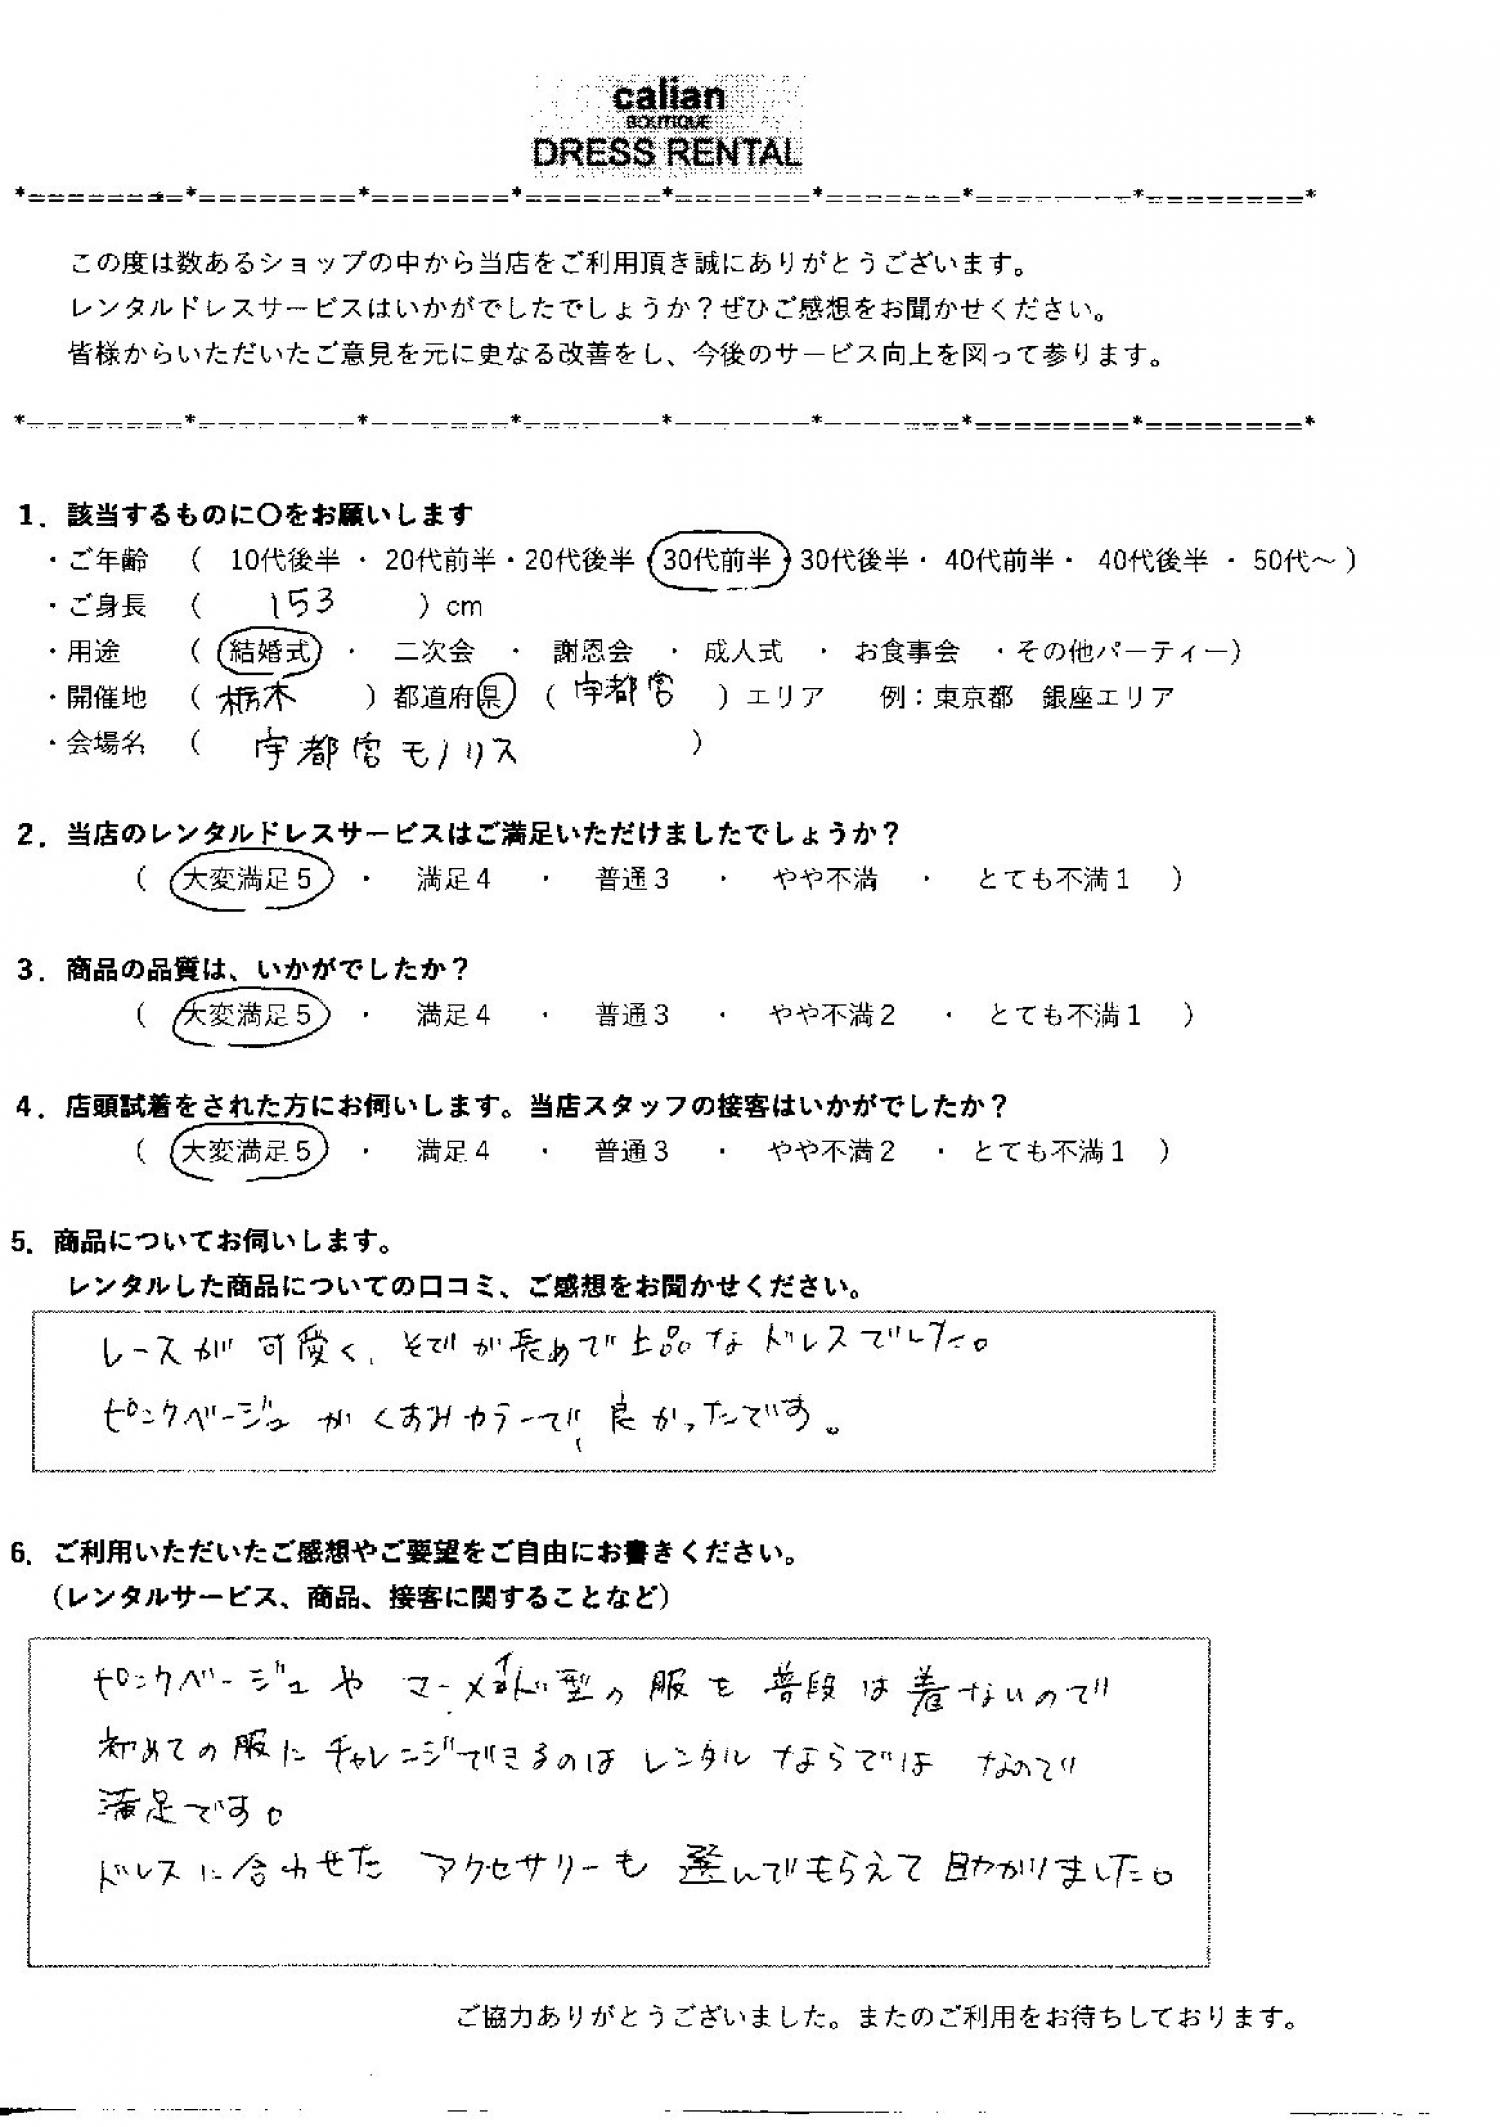 calian
BOUTIQUE
DRESS RENTAL
*========*========*=======*=======*=======*=======*========*========*
この度は数あるショップの中から当店をご利用頂き誠にありがとうございます。
レンタルドレスサービスはいかがでしたでしょうか？ぜひご感想をお聞かせください。
皆様からいただいたご意見を元に更なる改善をし、今後のサービス向上を図って参ります。
*========*========*=======*=======*=======*=======*========*========*
1．該当するものに〇をお願いします
・ご年齢 （ 10代後半 ・ 20代前半・20代後半・30代前半・30代後半・ 40代前半・ 40代後半 ・ 50代～ ）
・ご身長 （ 153 ） cm
・用途 （ 結婚式 ・ 二次会 ・ 謝恩会 ・ 成人式 ・ お食事会 ・その他パーティー）
・開催地 （ 栃木 ）都道府県 （ 宇都宮 ）エリア 例：東京都 銀座エリア
・会場名 （ 宇都宮モノリス ）
2．当店のレンタルドレスサービスはご満足いただけましたでしょうか？
（ 大変満足５ ・ 満足４ ・ 普通３ ・ やや不満 ・ とても不満１ ）
3．商品の品質は、いかがでしたか？
（ 大変満足５ ・ 満足４ ・ 普通３ ・ やや不満２ ・ とても不満１ ）
4．店頭試着をされた方にお伺いします。当店スタッフの接客はいかがでしたか？
（ 大変満足５ ・ 満足４ ・ 普通３ ・ やや不満２ ・ とても不満１ ）
5．商品についてお伺いします。
レンタルした商品についての口コミ、ご感想をお聞かせください。
レースが可愛く、そでが長めで上品なドレスでした。
ピンクベージュがくすみカラーで、良かったです。
6．ご利用いただいたご感想やご要望をご自由にお書きください。
（レンタルサービス、商品、接客に関することなど）
ピンクベージュや マーメイド型の服を普段は着ないので
初めての服にチャレンジできるのはレンタルならでは なので
満足です。
ドレスに合わせた アクセサリーも 選んでもらえて助かりました。
ご協力ありがとうございました。またのご利用をお待ちしております。